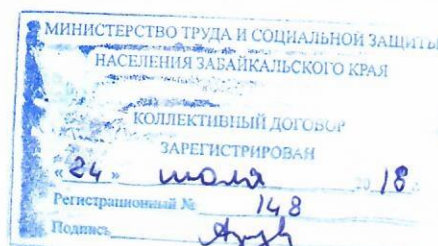 МИНИСТЕРСТВО ТРУДА И СОЦИАЛЬНОЙ ЗАЩИТЫ
НАСЕЛЕНИЯ ЗАБАЙКАЛЬСКОГО КРАЯ
КОЛЛЕКТИВНЫЙ ДОГОВОР
ЗАРЕГИСТРИРОВАН
« 24 » июля 20 18 г.
Регистрационный № 148
Подпись